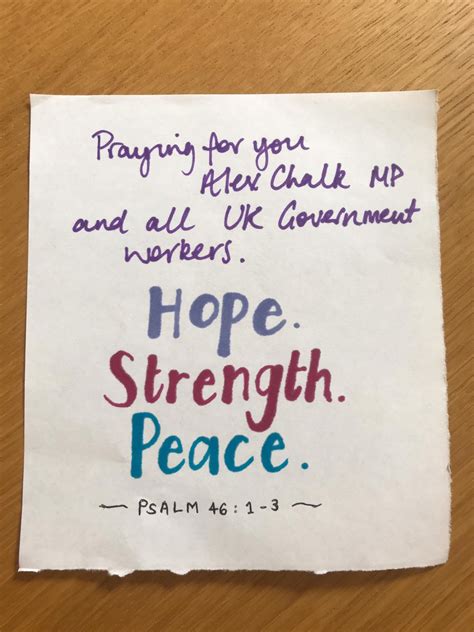 Praying for you
Alex Chalk MP
and all UK Government
workers.
Hope.
Strength.
Peace.
— PSALM 46:1-3 —